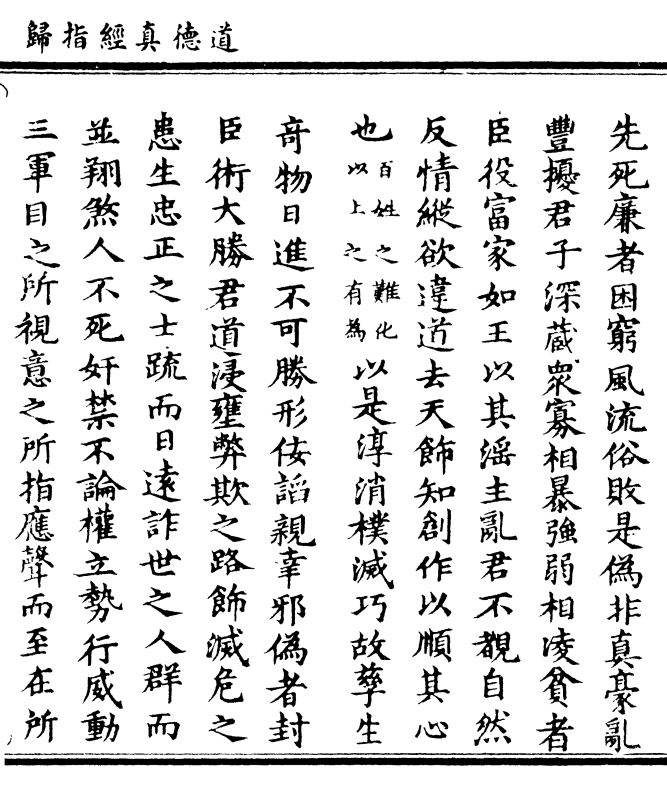 道德真經指歸
先死廉者困窮風流俗敗是偽非真豪亂
豐擾君子深藏衆寡相暴強弱相凌貧者
臣役富家如王以其滛主亂君不覩自然
反情縱欲違道去天飾知創作以順其心
也百姓之難化以上之有為以是淳消樸滅巧故孳生
竒物日進不可勝形佞謟親幸邪偽者封
臣術大勝君道浸壅弊欺之路飾滅危之
患生忠正之士䟽而日逺詐世之人群而
並翔煞人不死奸禁不論權立勢行威動
三軍目之所視意之所指應聲而至在所